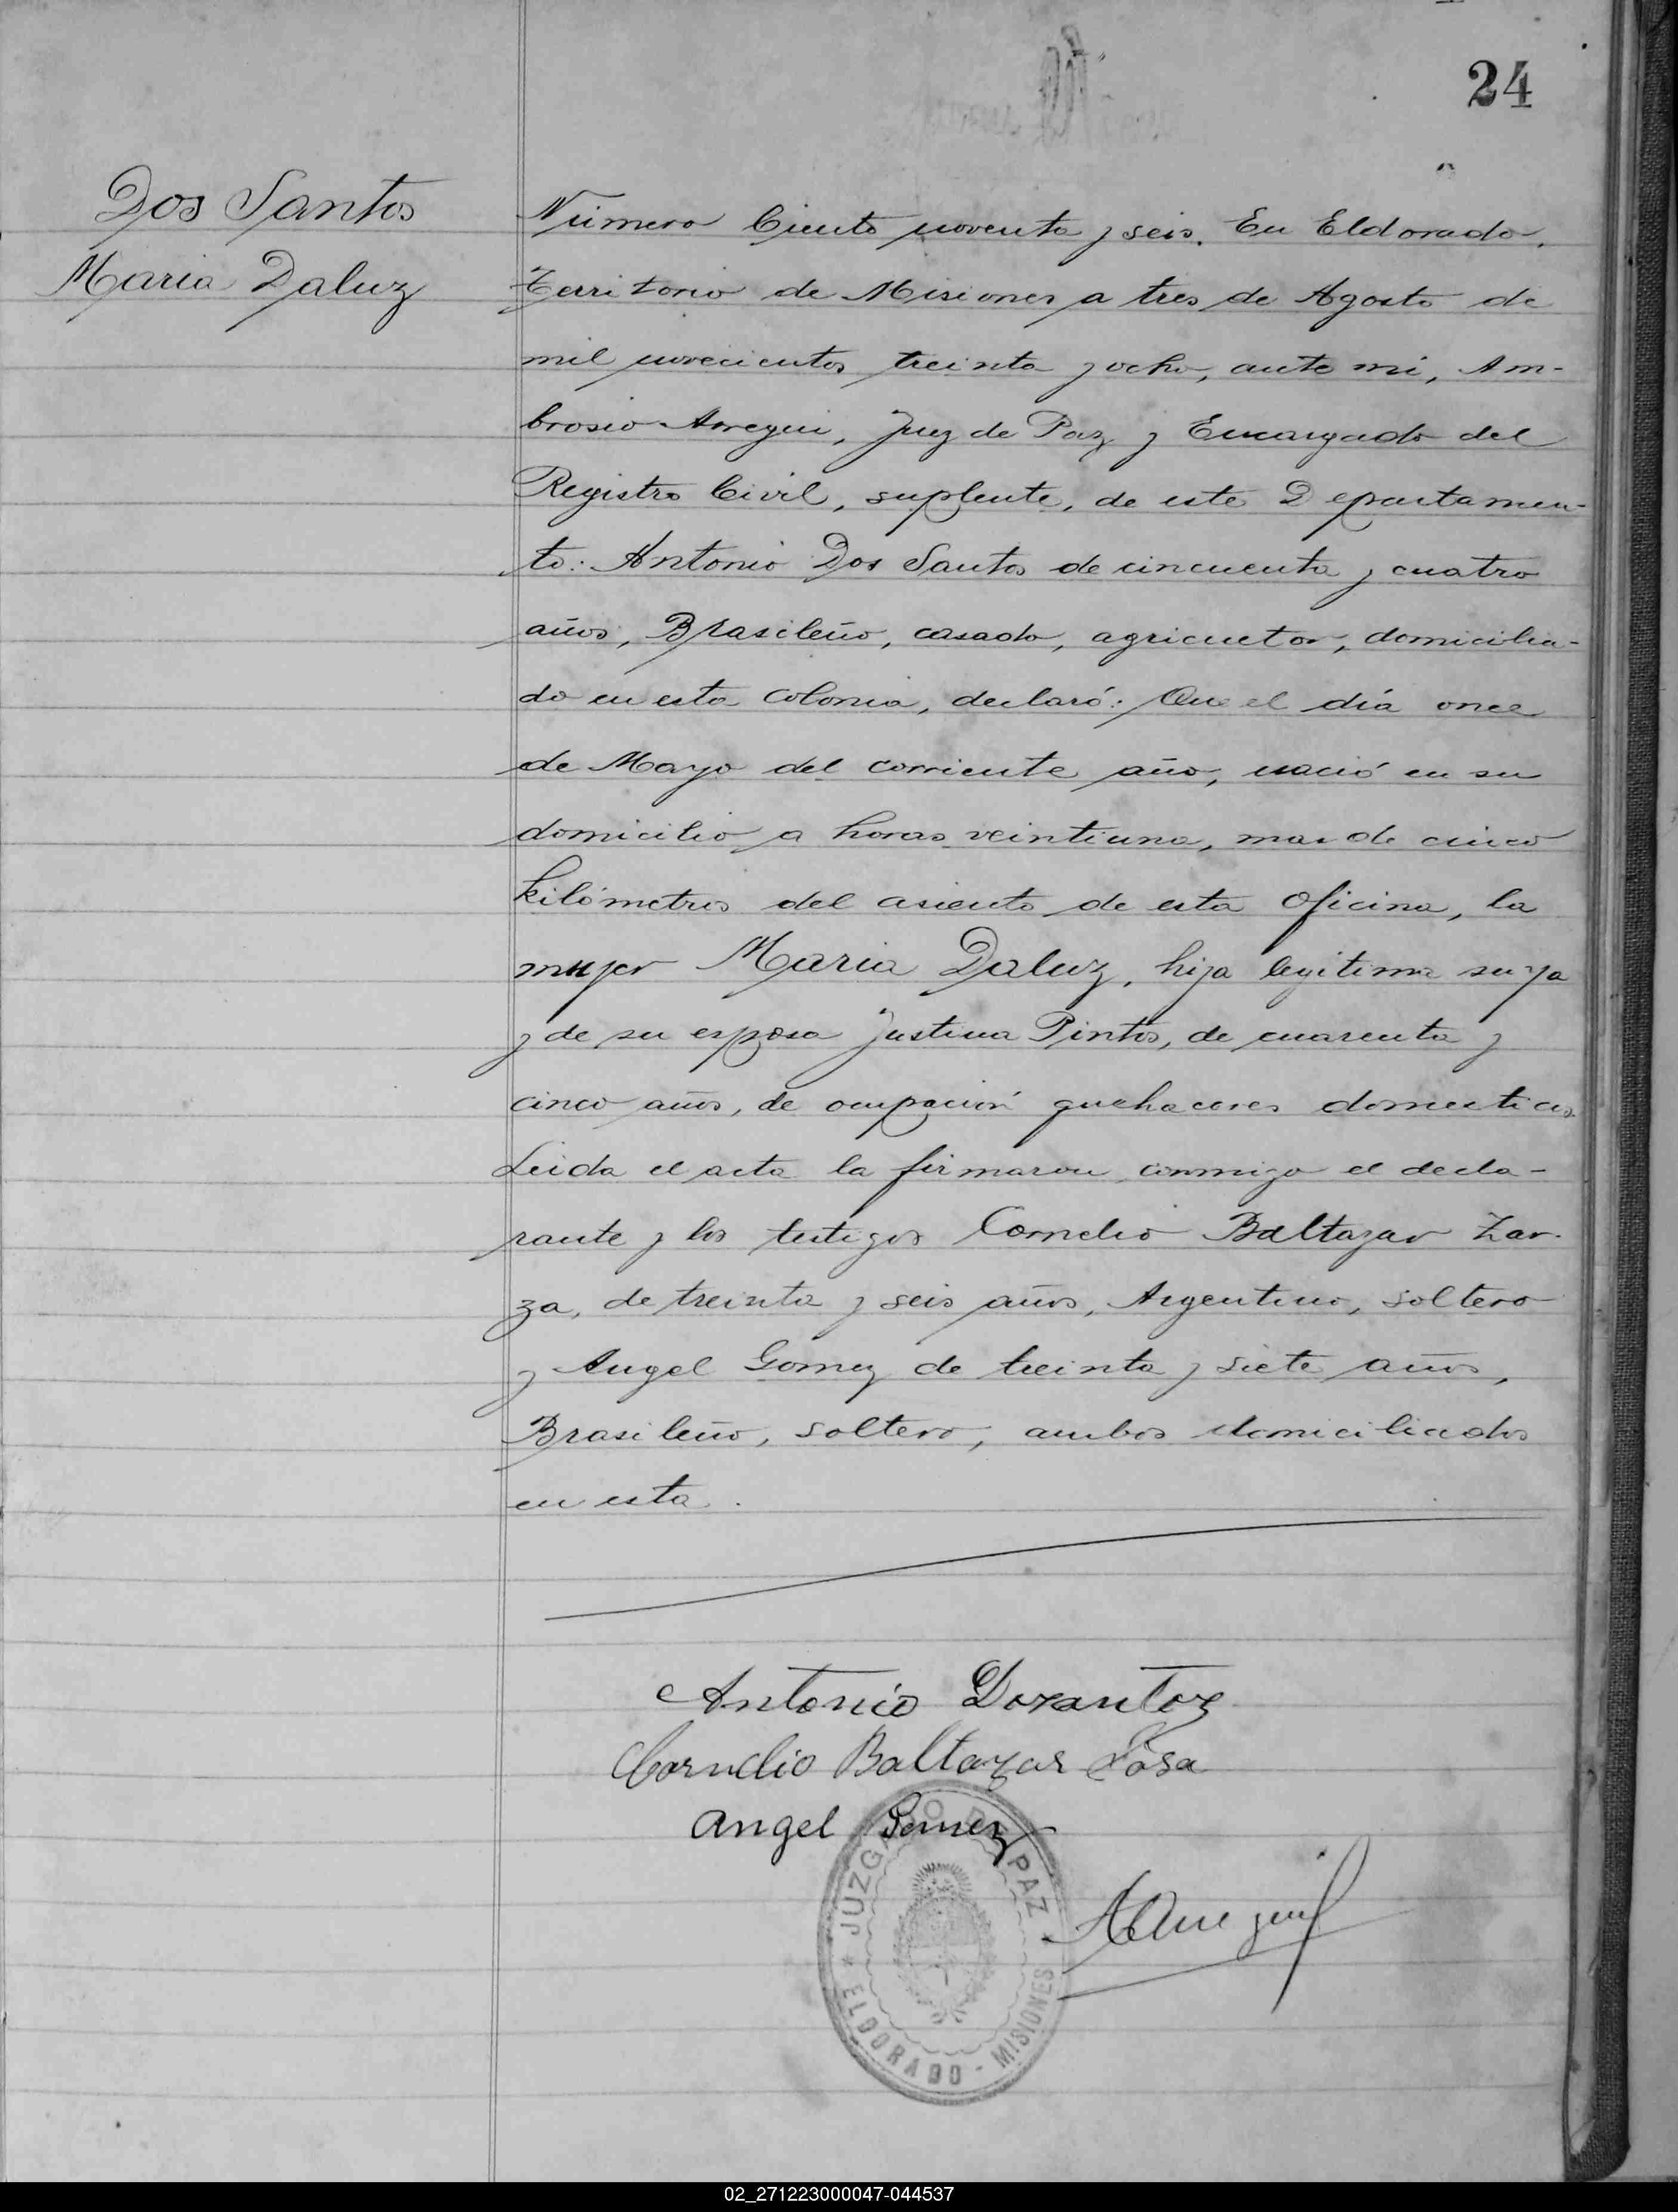 24
Dos Santos
Maria Daluz
Número Ciento noventa y seis. En Eldorado,
Territorio de Misiones a tres de Agosto de
mil novecientos treinta y ocho, ante mi, Am-
brosio Arregui, Juez de Paz y Encargado del
Registro Civil, suplente, de este Departamen-
to: Antonio Dos Santos de cincuenta y cuatro
años, Brasileño, casado, agricultor, domicilia-
do en esta colonia, declaró: Que el día once
de Mayo del corriente año, nació en su
domicilio a horas veintiuna, mas de cinco
kilómetros del asiento de esta Oficina, la
mujer Maria Daluz, hija legitima suya
y de su esposa Justina Pintos, de cuarenta y
cinco años, de ocupación quehaceres domesticos.
Leida el acta la firmaron conmigo el decla-
rante y los testigos Cornelio Baltazar Zar-
za, de treinta y seis años, Argentino, soltero
y Angel Gomez de treinta y siete años,
Brasileño, soltero, ambos domiciliados
en esta.
Antonio Dozantoz
Cornelio Baltazar Sosa
Angel Gomez
AArregui
JUZGADO DE PAZ
* ELDORADO - MISIONES *
02_271223000047-044537